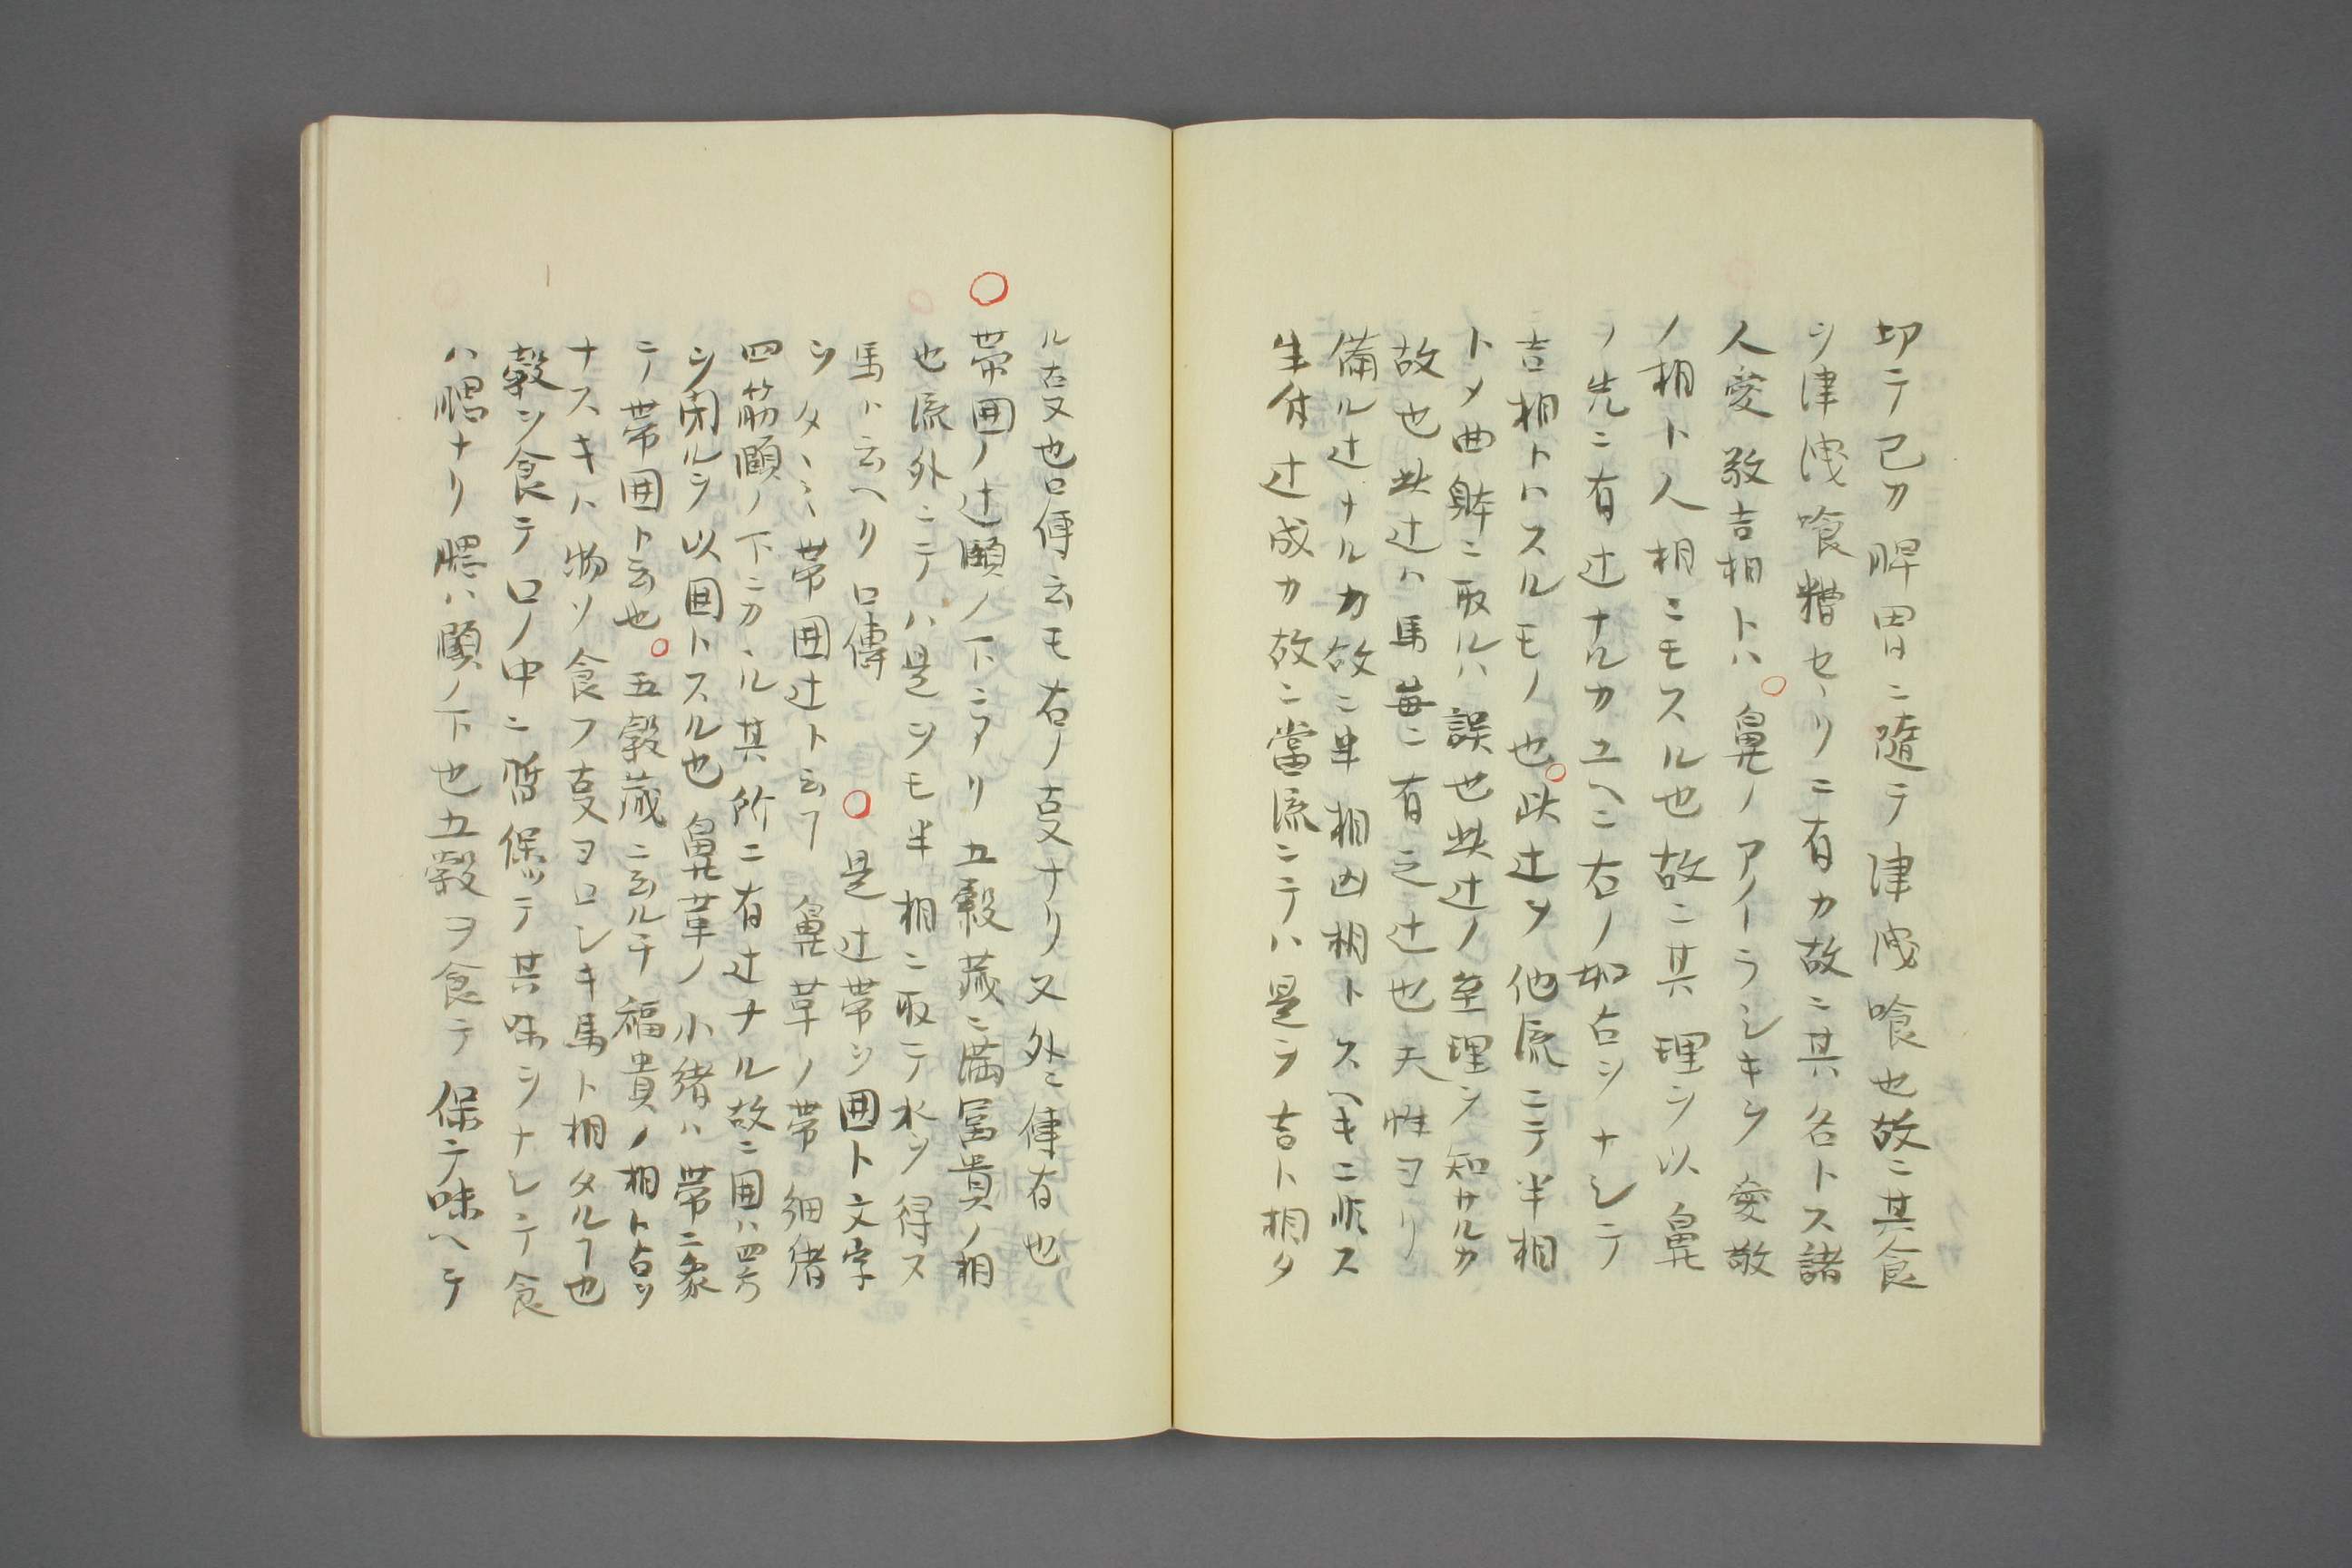 切テ已カ脾胃ニ随テ津洩喰也故ニ其食
ヲ津洩喰糟セヽリニ有カ故ニ其名トス諸
人愛敬吉相トハ○鼻ノアイーラシキヲ愛敬
ノ相ト人相ニモスル也故ニ其理ヲ以鼻
ノ先ニ有辻ナルカユヘニ右ノ如占ヲナシテ
吉相トハスルモノ也○此辻ヲ他流ニテ半相
トメ曲躰ニ取ルハ誤也此辻ノ至理ヲ知サルカ
故也此辻ハ馬毎ニ有之辻也夫性ヨリ
備ル辻ナルカ故ニ半相凶相トスヘキニ非ス
生付辻成カ故ニ當流ニテハ是ヲ吉ト相タ
ル㕝也口傳云モ右ノ㕝ナリ又外ニ傳有也
○帯囲ノ辻頤ノ下ニアリ五穀蔵ニ満冨貴ノ相
也流外ニテハ是ヲモ半相ニ取テ水ヲ得ス
馬ト云ヘリ口傳　○是辻帯ヲ囲ト文字
ヲタヽミ帯囲辻ト云ヿ鼻革ノ帯細緒
四筋頤ノ下ニカヽル其所ニ有辻ナル故ニ囲ハ四方
ヲ閉ルヲ以囲トスル也鼻革ノ小緒ハ帯ニ象
テ帯囲ト云也○五穀蔵ニ云ル千福貴ノ相ト占ツ
ナスキハ物ヲ食フ㕝ヨロシキ馬ト相タルヿ也
穀ヲ食テ口ノ中ニ暫保ッテ其味ヲナシテ食
ハ腮ナリ腮ハ頤ノ下也五穀ヲ食テ保テ味ヘテ